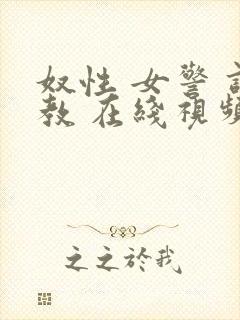 奴性 女警 
教 在綫視頻
之之於我